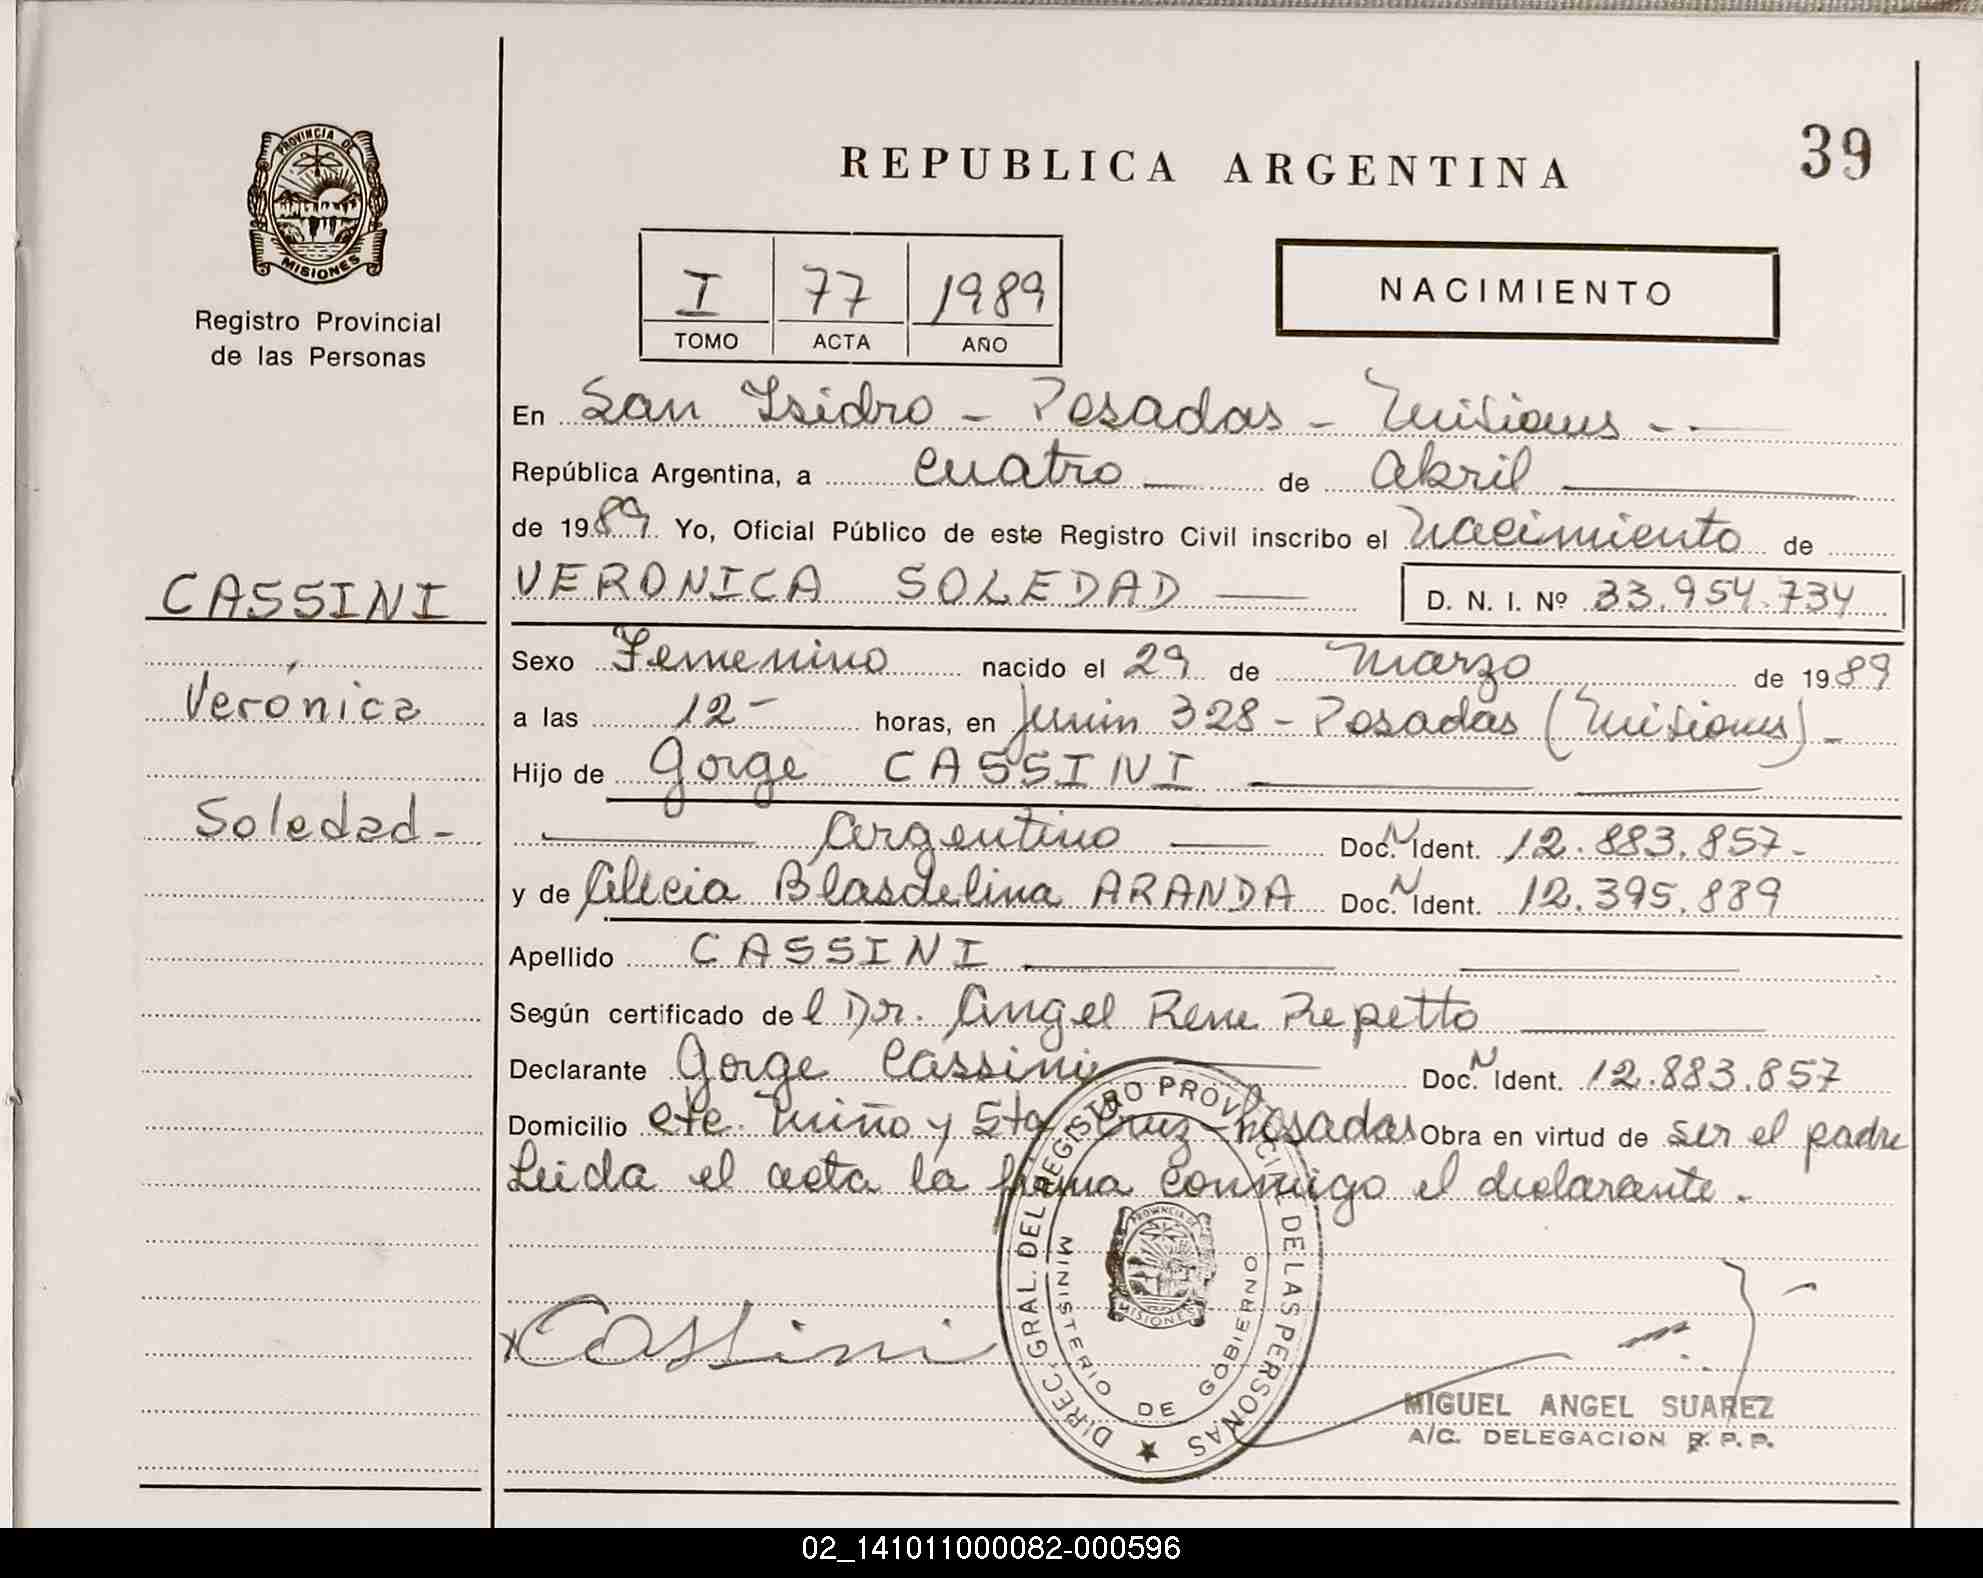 PROVINCIA DE
MISIONES
Registro Provincial
de las Personas
CASSINI
Verónica
Soledad-
REPUBLICA ARGENTINA
39
I 77 1989
TOMO ACTA AÑO
NACIMIENTO
En San Isidro - Posadas - Misiones -
República Argentina, a cuatro de abril
de 1989 Yo, Oficial Público de este Registro Civil inscribo el Nacimiento de
VERONICA SOLEDAD D. N. I. Nº 33.954.734
Sexo Femenino nacido el 29 de Marzo de 1989
a las 12- horas, en Junin 328 - Posadas (Misiones) -
Hijo de Jorge CASSINI
argentino Doc. N Ident. 12.883.857-
y de Alicia Blasdelina ARANDA Doc. N Ident. 12.395.839
Apellido CASSINI
Según certificado del Dr. Angel Rene Repetto
Declarante Jorge Cassini Doc. N Ident. 12.883.857
Domicilio cte. Miño y Sta Cruz - Posadas Obra en virtud de ser el padre
Leida el acta la firma conmigo el declarante.
DIREC. GRAL. DEL REGISTRO PROVINCIAL DE LAS PERSONAS
MINISTERIO DE GOBIERNO
PROVINCIA DE
MISIONES
Cassini
MIGUEL ANGEL SUAREZ
A/C. DELEGACION R. P. P.
02_141011000082-000596